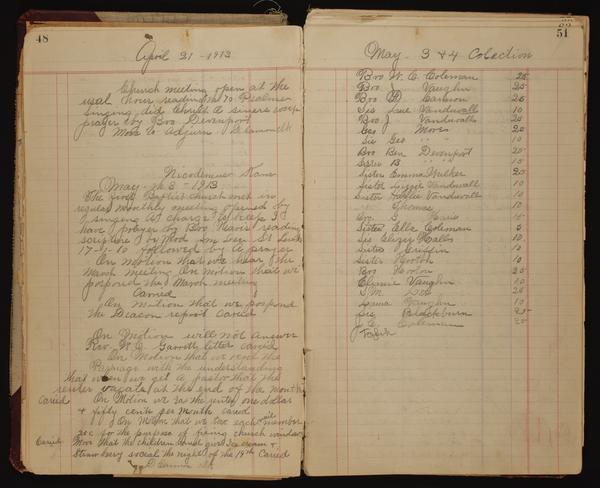 48
April 21 - 1913
Church meeting open at the
usal hour reading the 70 Psalms
singing did Christ oer sinners weep
prayer by Bro Devenport
Move to adjurn D Cannon clk
Nicodemus Kans
May the 3 - 1913
The first Baptist church met in
regular monthly meeting opened by
singing A charge to keep I
have prayer by Bro reading
scripture by Mod St Luke
17-1-10 followed by a prayer
On Motion that we hear the
March meeting On Motion that we
pospond the March meeting
Caried
On motion that we pospond
the Deacon report Caried
On Motion will not answer
Rev. W. C. Garrett letter caried
On Motion that we rent the
Parsnage with the understanding
that when we get a pastor that the
renter vacate at the end of the month
Caried On Motion we tax the renter one dollar
& fifty cents per month caried
On Motion that we tax each member
20c for the purpose of fixing church window
Caried Move that the children give Ice cream &
Strawbery social the night of the 19th Caried
D Cannon clk
51
May 3 & 4 Colection
Bro W. C. Coleman 25
Bro J Vaughn 25
Bro D. Cannon 25
Sis Sue Vanduvall 10
Bro J Vanduvall 25
Geo Moore 20
Sis Geo " " 10
Bro Ben Devenport 25
Sister B " " 15
Sister Emma Walker 20
Sister Lizzie Vanduvall 10
Sister Vanduvall 10
" Thomas 10
Bro. G. 15
Sister Ella Coleman 5
Sis Elizer Hall 10
Sister Griffin 10
Sister Horton 10
Bro Horton 25
Vaughn 10
S. M. 25
Vaughn 10
Sis Blackburn 25
J. C. Coleman 25